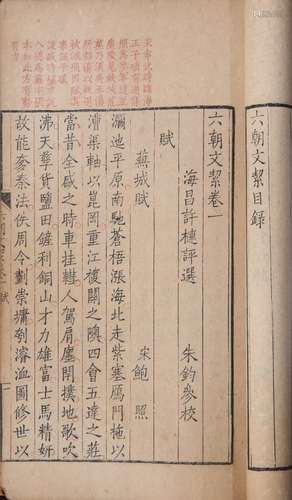 六朝文絜目錄
宋孝武時臨海
六朝文絜卷一
海昌許槤評選 朱鈞參校
賦
蕪城賦 宋鮑照
瀰迆平原南馳蒼梧漲海北走紫塞鴈門柂以
漕渠軸以崑岡重江複關之隩四會五達之莊
當昔全盛之時車挂轊人駕肩廛閈撲地歌吹
沸天孳貨鹽田鏟利銅山才力雄富士馬精妍
故能奓秦法佚周令劃崇墉刳濬洫圖修世以